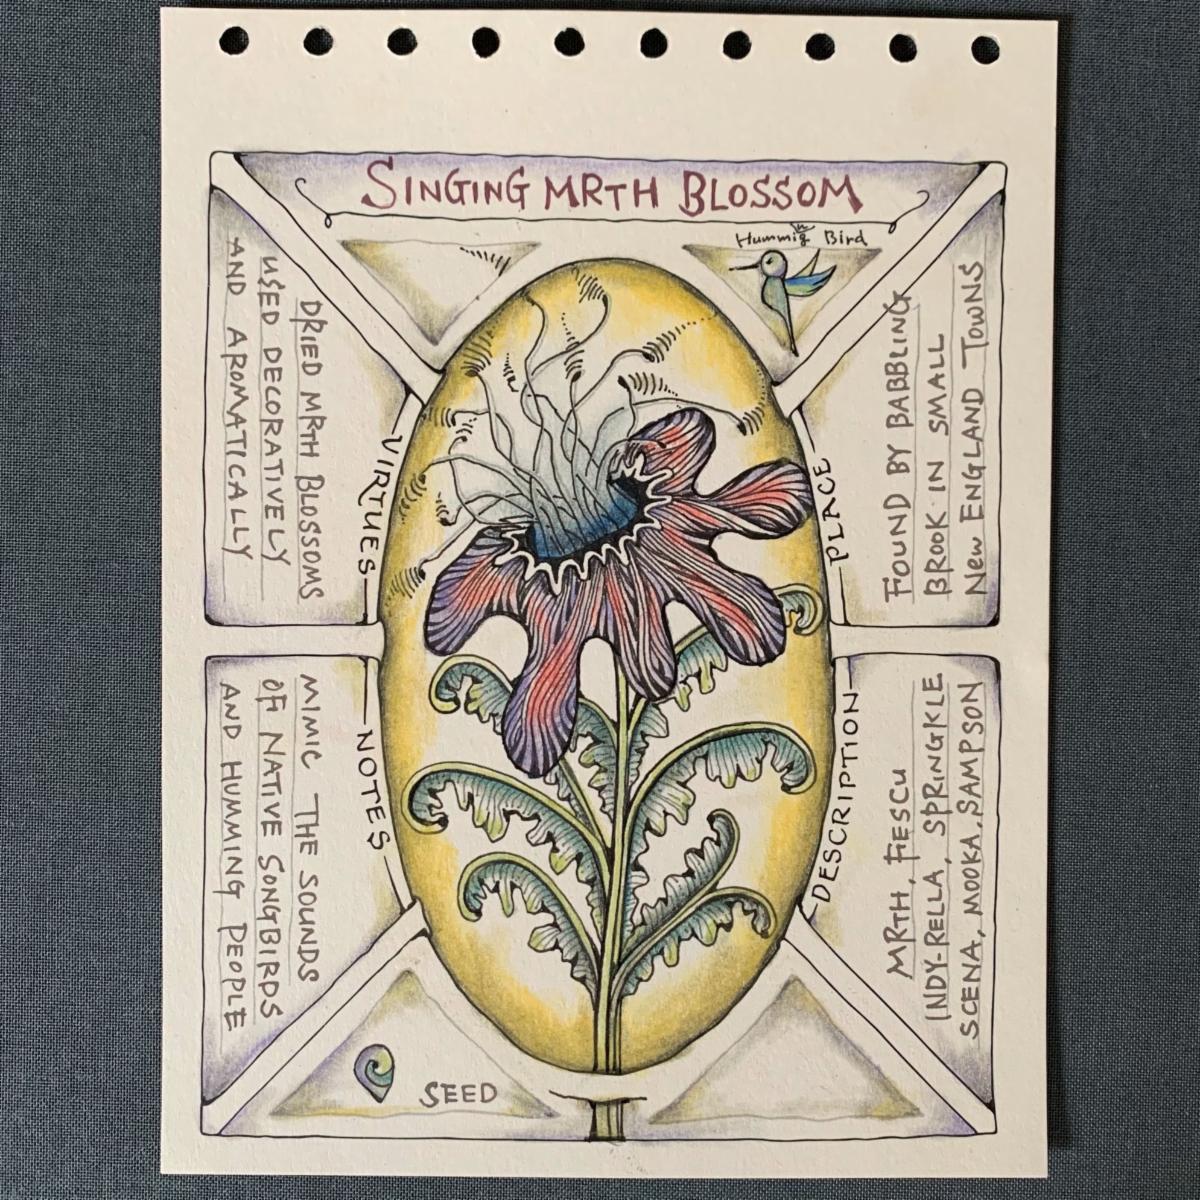 SINGING MRTH BLOSSOM
Hummin Bird
g
DRIED MRTH BLOSSOMS
USED DECORATIVELY
AND AROMATICALLY
VIRTUES
PLACE
FOUND BY BABBLING
BROOK IN SMALL
New ENGLAND TOWNS
MIMIC THE SOUNDS
OF NATIVE SONGBIRDS
AND HUMMING PEOPLE
NOTES
DESCRIPTION
MRTH, FIESCU
INDY-RELLA, SPRINGKLE
SCENA, MOOKA, SAMPSON
SEED